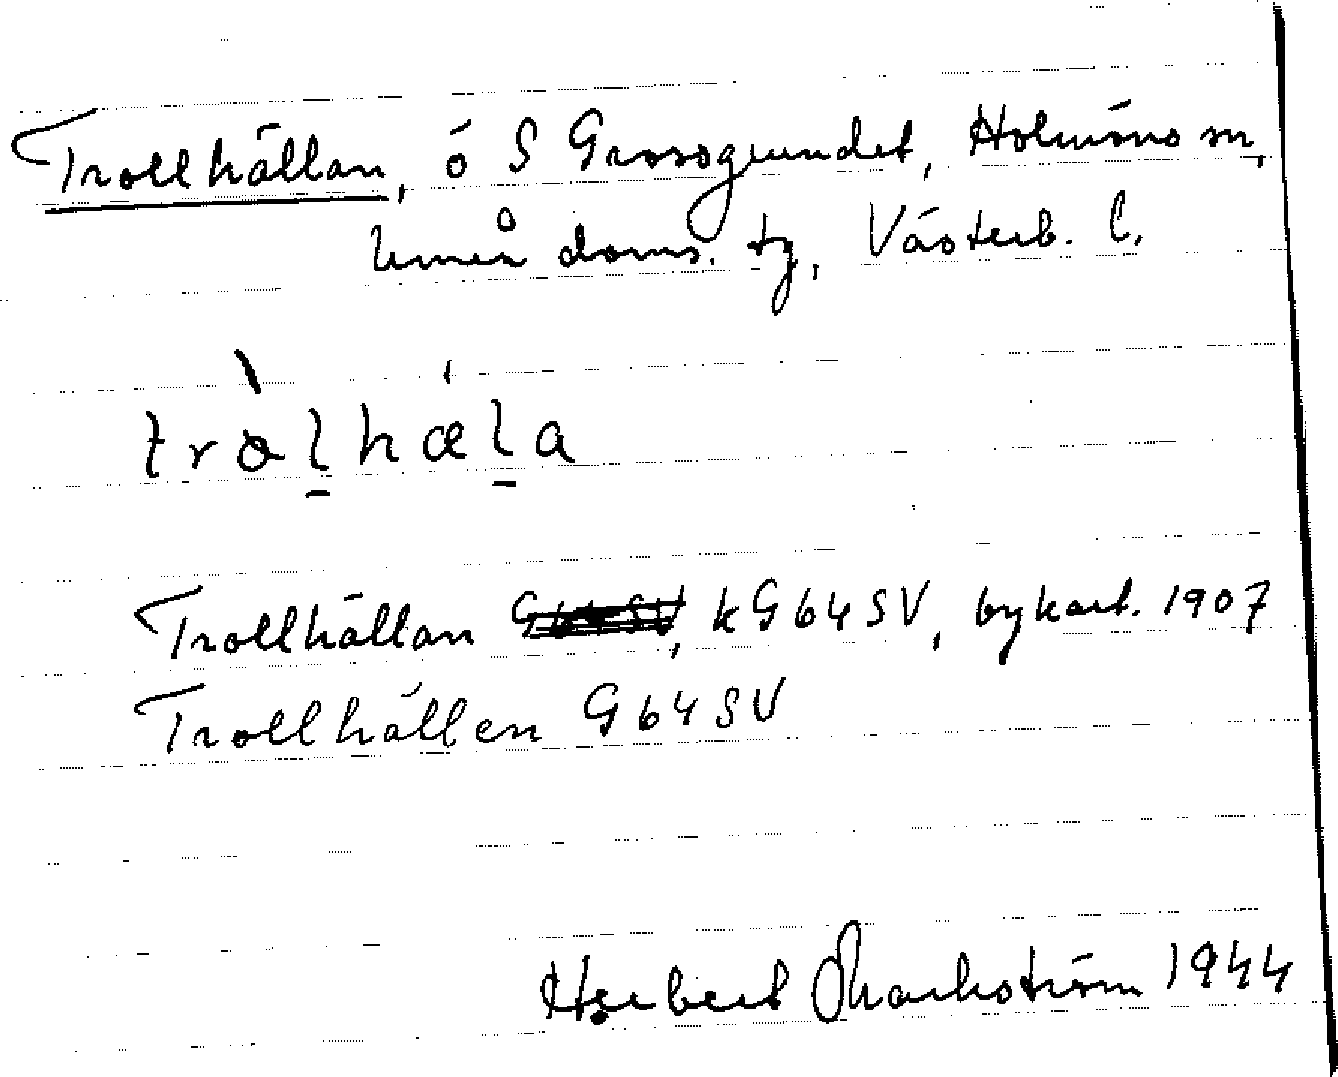 Trollhällan, ö S Grossgrundet, Holmöns sn,
Umeå doms. tg, Västerb. l.
tròl̠hæl̠a
Trollhällan G64SV, kG64SV, bykart. 1907
Trollhällen G64SV
Herbert Markström 1944